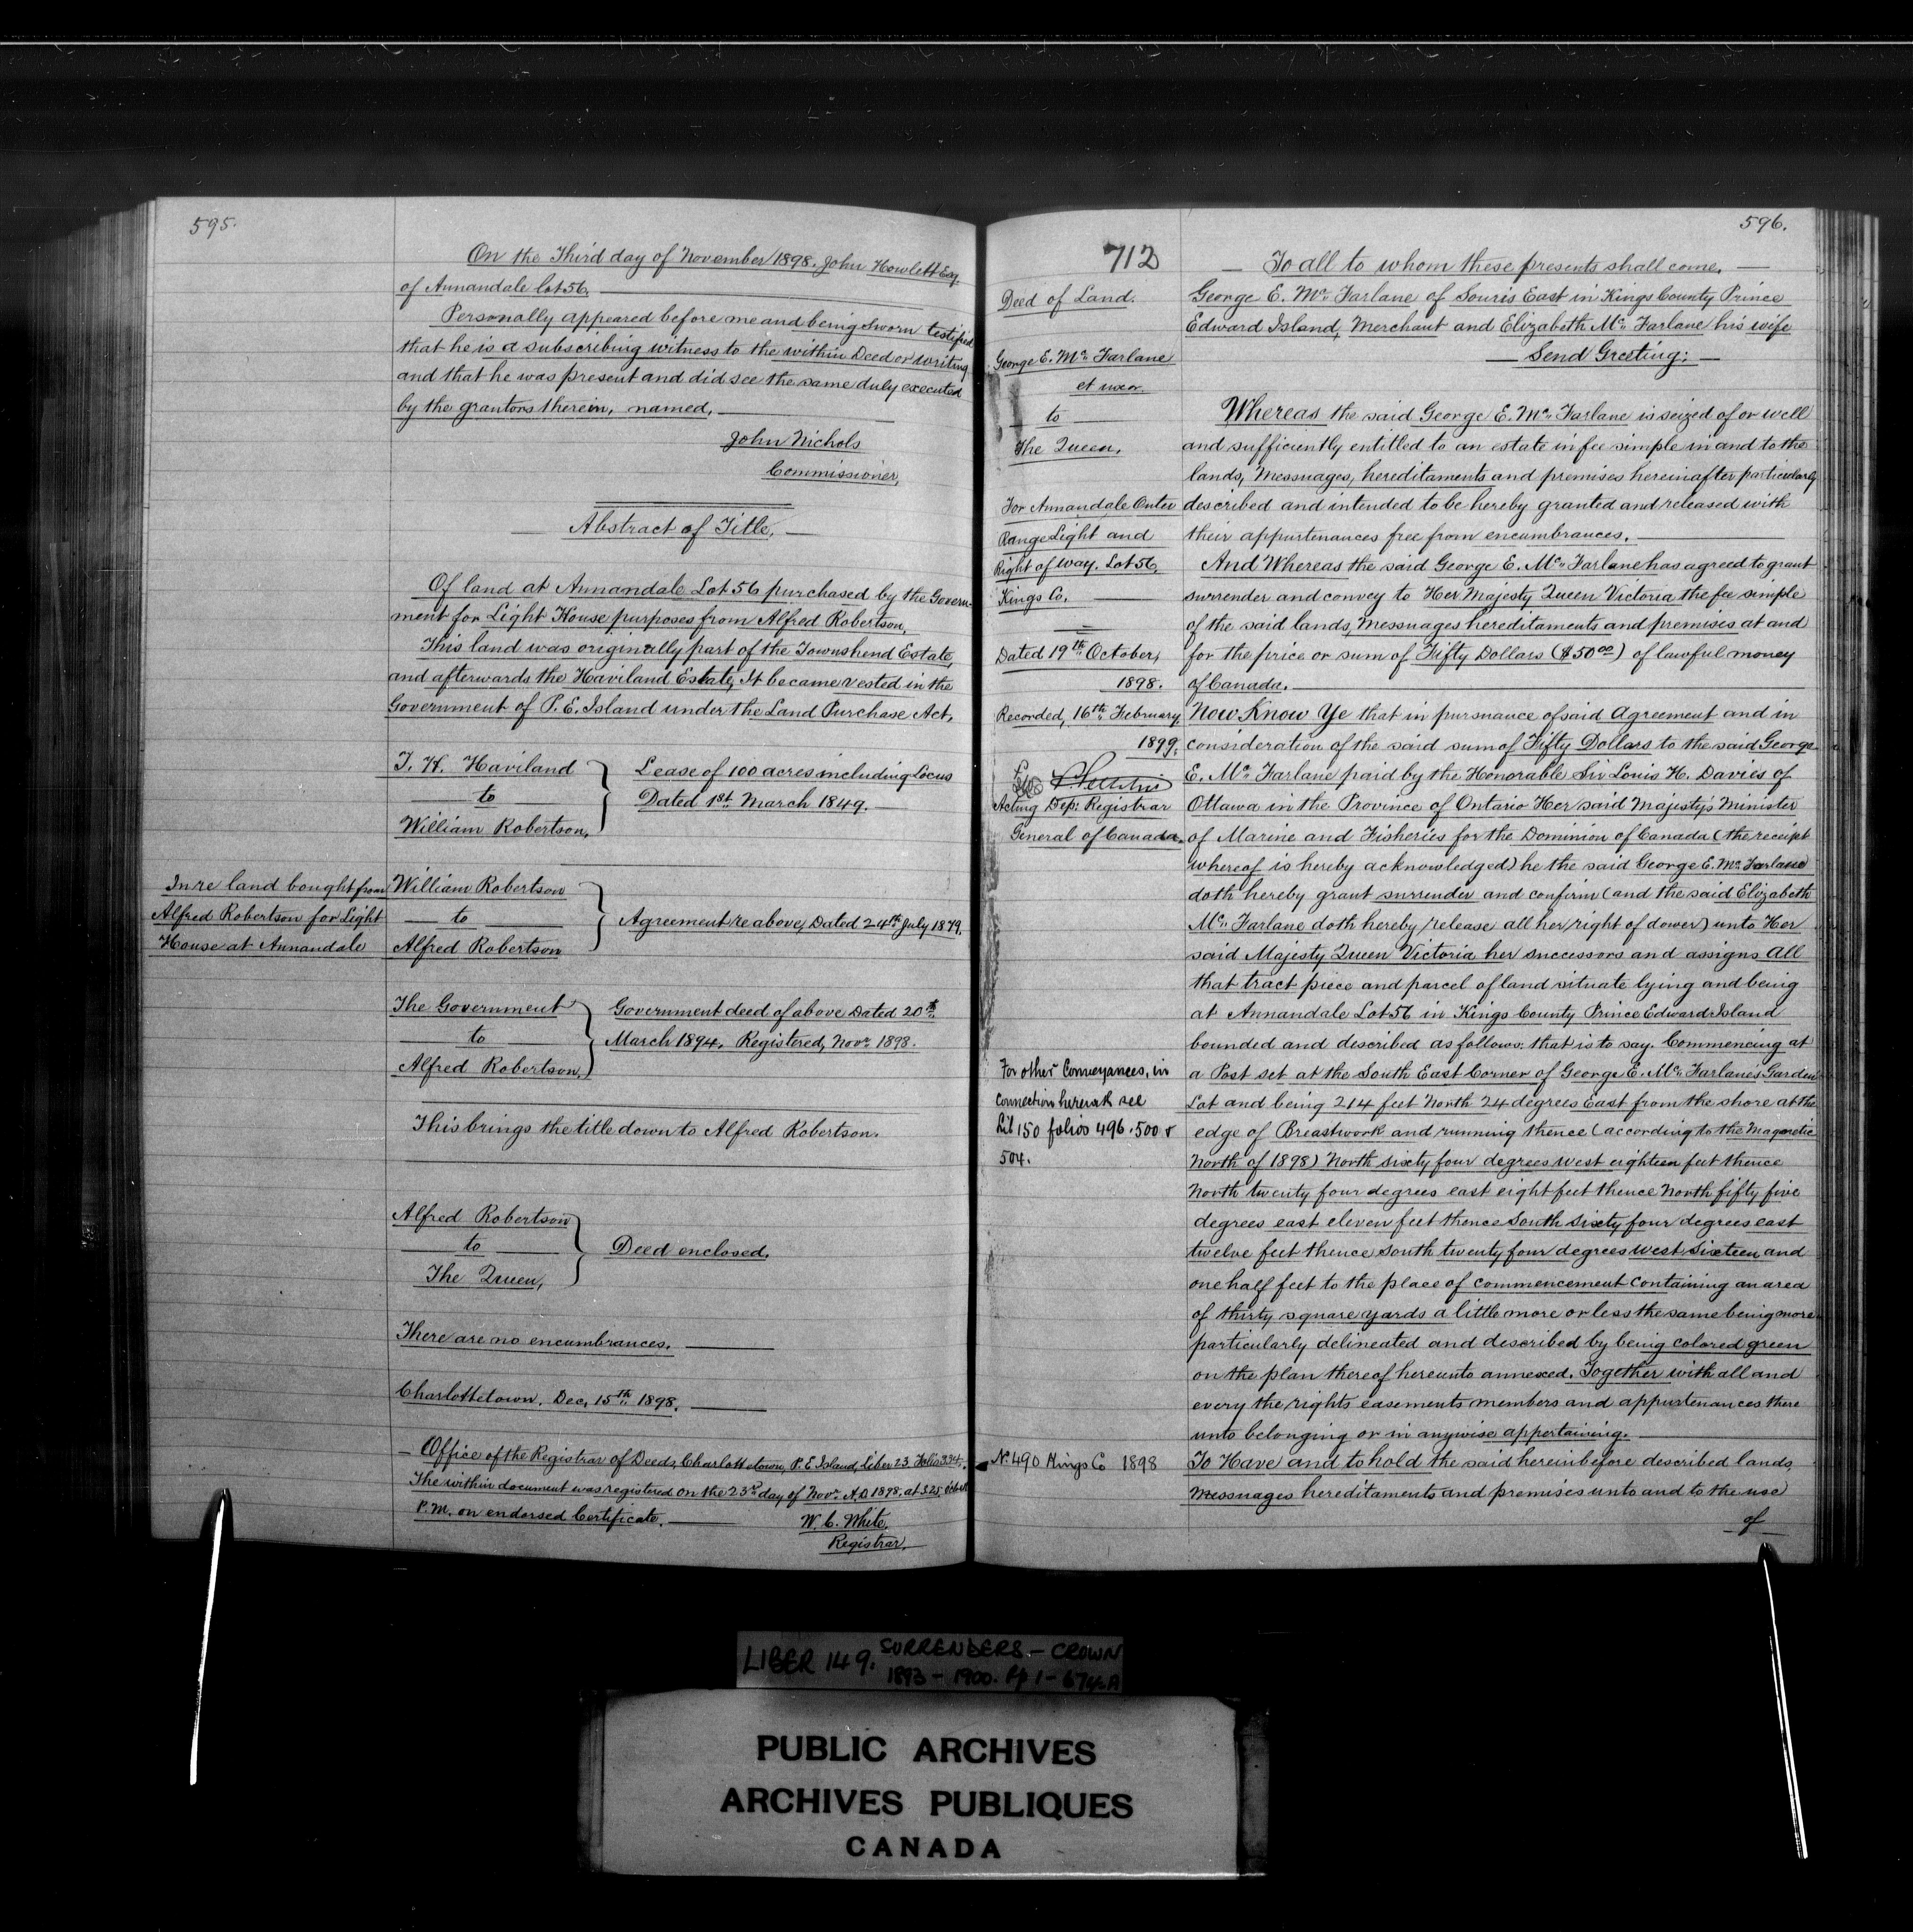 595.
On the Third day of November 1898. John Howlett Esq.
of Annandale lot 56.
Personally appeared before me and being Sworn testified
that he is a subscribing witness to the within Deed or writing
and that he was present and did see the same duly executed
by the grantors therein, named.
John Nichols
Commissioner,
Abstract of Title,
Of land at Annandale Lot 56 purchased by the Govern-
ment for Light House purposes from Alfred Robertson.
This land was originally part of the Townshend Estate,
and afterwards the Haviland Estate, It became vested in the
Government of P. E. Island under the Land Purchase Act.
T. H. Haviland
to
William Robertson,
Lease of 100 acres including Locus
Dated 1st March 1849.
In re land bought from
Alfred Robertson for Light
House at Annandale
William Robertson
to
Alfred Robertson
Agreement re above, Dated 24th July 1879.
The Government
to
Alfred Robertson,
Government deed of above Dated 20th
March 1894. Registered, Novr 1898.
This brings the title down to Alfred Robertson.
Alfred Robertson
to
The Queen,
Deed enclosed.
There are no encumbrances.
Charlottetown. Dec. 15th 1898.
Office of the Registrar of Deeds, Charlottetown, P. E. Island, Liber 23 Folio 334.
The within document was registered on the 23rd day of Novr A.D 1898, at 3.25 o'clock
P.M. on endorsed Certificate.
W. C. White,
Registrar.
596.
712
Deed of Land.
George E. Mc Farlane
et uxor
to
The Queen,
For Annandale Outer
Range Light and
Right of way. Lot 56,
Kings Co.
Dated 19th October,
1898.
Recorded, 16th February,
1899.
Acting Dep: Registrar
General of Canada.
For other Conveyances, in
connection herewith see
Lib 150 folios 496. 500 &
504.
No 490 Kings Co 1898
To all to whom these presents shall come.
George E. Mc Farlane of Souris East in Kings County Prince
Edward Island, Merchant and Elizabeth Mc Farlane his wife
Send Greeting:
Whereas the said George E. Mc Farlane is seized of or well
and sufficiently entitled to an estate in fee simple in and to the
lands, Messuages, hereditaments and premises hereinafter particularly
described and intended to be hereby granted and released with
their appurtenances free from encumbrances.
And Whereas the said George E. Mc Farlane has agreed to grant
surrender and convey to Her Majesty Queen Victoria the fee simple
of the said lands, Messuages hereditaments and premises at and
for the price or sum of Fifty Dollars ($50 00) of lawful money
of Canada.
Now Know Ye that in pursuance of said Agreement and in
consideration of the said sum of Fifty Dollars to the said George
E. Mc Farlane paid by the Honorable Sir Louis H. Davies of
Ottawa in the Province of Ontario Her said Majesty's Minister
of Marine and Fisheries for the Dominion of Canada (the receipt
whereof is hereby acknowledged) he the said George E. Mc Farlane
doth hereby grant surrender and confirm (and the said Elizabeth
Mc Farlane doth hereby release all her right of dower) unto Her
said Majesty Queen Victoria her successors and assigns All
that tract piece and parcel of land situate lying and being
at Annandale Lot 56 in Kings County Prince Edward Island
bounded and described as follows: that is to say. Commencing at
a Post set at the South East Corner of George E. Mc Farlane's Garden
Lot and being 214 feet North 24 degrees East from the shore at the
edge of Breastwork and running thence (according to the Magnetic
North of 1898) North sixty four degrees west eighteen feet thence
North twenty four degrees east eight feet thence North fifty five
degrees east eleven feet thence South sixty four degrees east
twelve feet thence South twenty four degrees west sixteen and
one half feet to the place of commencement containing an area
of thirty square yards a little more or less the same being more
particularly delineated and described by being colored green
on the plan thereof hereunto annexed. Together with all and
every the rights easements members and appurtenances there
unto belonging or in anywise appertaining.
To Have and to hold the said hereinbefore described lands,
Messuages hereditaments and premises unto and to the use
of
LIBER 149. SURRENDERS - CROWN
1893 - 1900. Pp 1 - 674A
PUBLIC ARCHIVES
ARCHIVES PUBLIQUES
CANADA